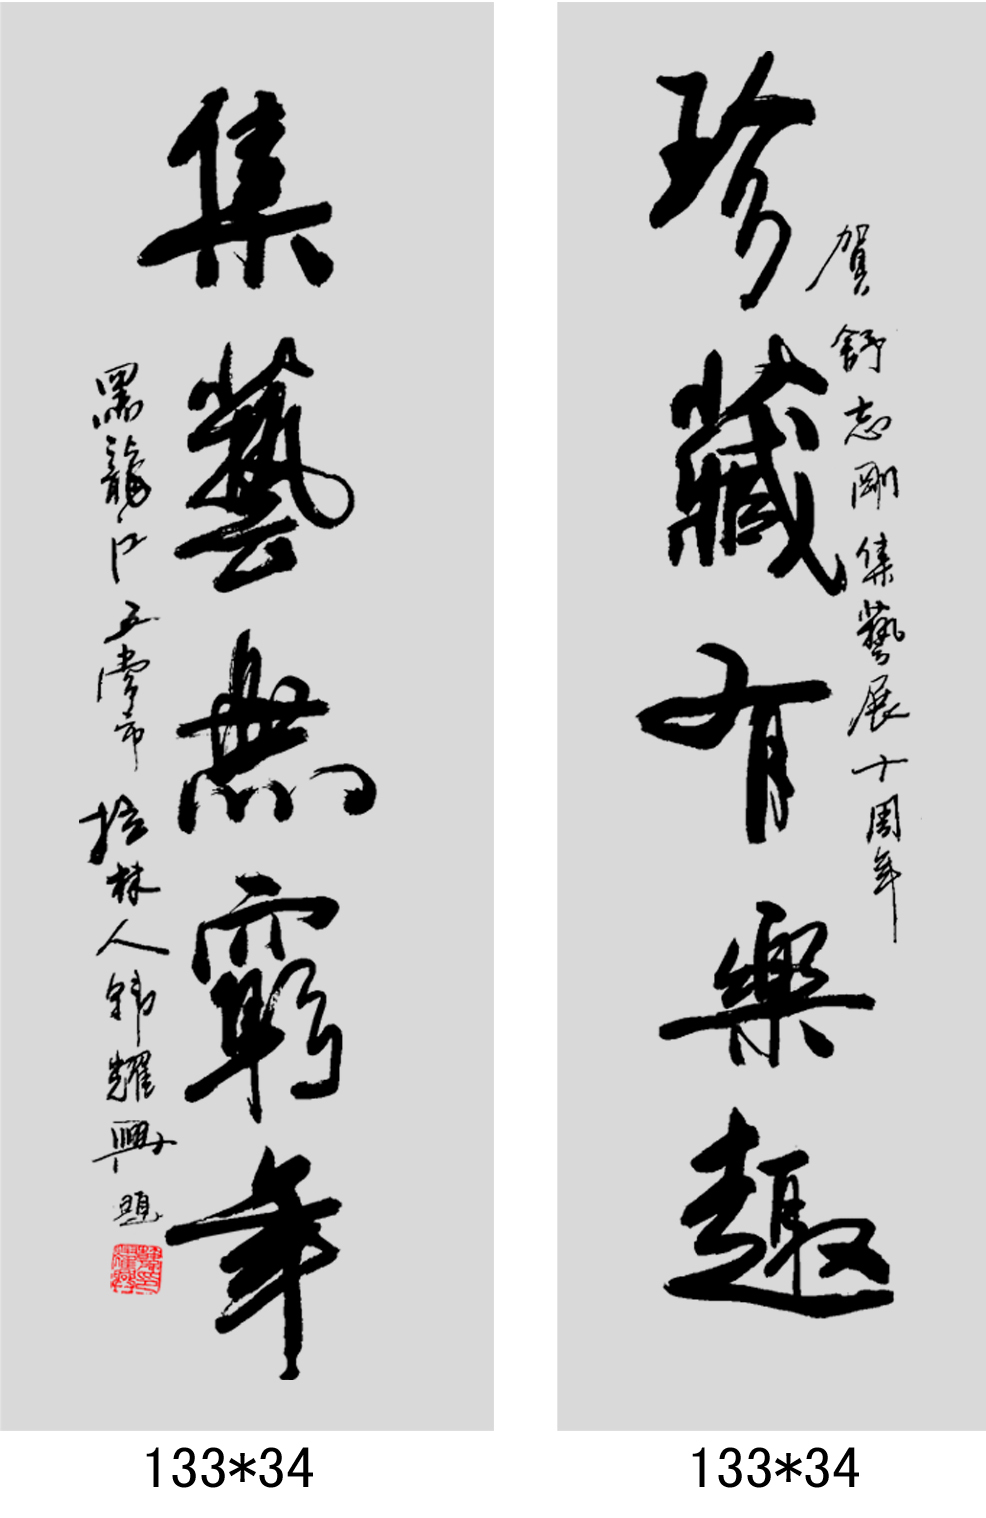 珍藏有樂趣
賀舒志剛集藝展十周年
集藝無窮年
黑龍江五常市拉林人韩耀興题
133*34
133*34